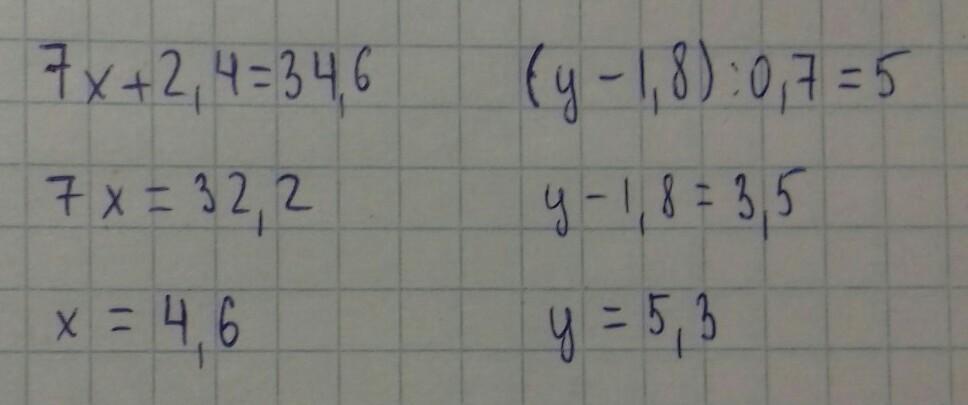 7x+2,4=34,6
7x=32,2
x=4,6
(y-1,8):0,7=5
y-1,8=3,5
y=5,3